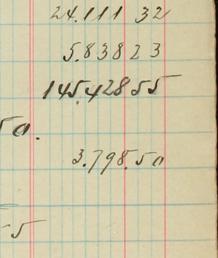 24.111 32
5.838 23
145.428 55
50.
3.798.50
55